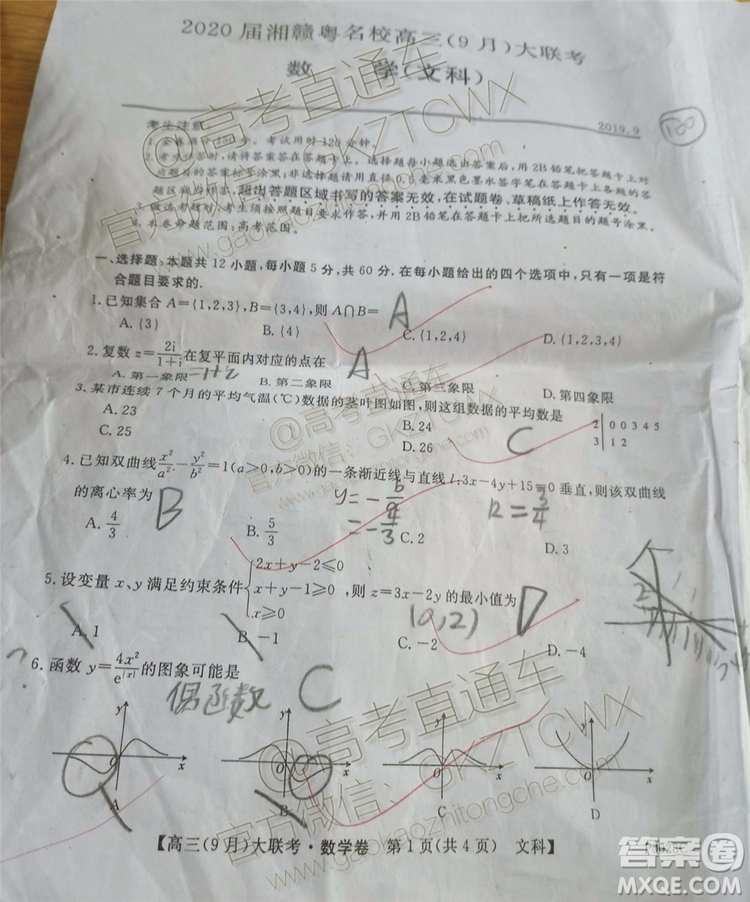 2020届湘赣粤名校高三(9月)大联考
数 学(文科)
2019.9
100
考生注意
2.考生作答时,请将答案答在答题卡上。选择题每小题选出答案后,用2B铅笔把答题卡上对
应题目的答案标号涂黑;非选择题请用直径0.5毫米黑色墨水签字笔在答题卡上各题的答
题区域内作答,超出答题区域书写的答案无效,在试题卷、草稿纸上作答无效。
并用2B铅笔在答题卡上把所选题目的题号涂黑。
命题范围:高考范围。
一、选择题:本题共12小题,每小题5分,共60分.在每小题给出的四个选项中,只有一项是符
合题目要求的.
1.已知集合A={1,2,3},B={3,4},则A∩B= A
A.{3} B.{4} C.{1,2,4} D.{1,2,3,4}
2.复数z=2i/(1+i)在复平面内对应的点在 A
A.第一象限 =1+i B.第二象限 C.第三象限 D.第四象限
3.某市连续7个月的平均气温(℃)数据的茎叶图如图,则这组数据的平均数是 C
A.23 B.24
C.25 D.26
2|0 0 3 4 5
3|1 2
4.已知双曲线x²/a²-y²/b²=1(a>0,b>0)的一条渐近线与直线l:3x-4y+15=0垂直,则该双曲线
的离心率为 B
y=-b/a
=-4/3
k=3/4
A.4/3 B.5/3 C.2 D.3
5.设变量x、y满足约束条件{2x+y-2≤0 x+y-1≥0 x≥0,则z=3x-2y的最小值为 D
(0,2)
A.1 B.-1 C.-2 D.-4
?
6.函数y=4x²/e^|x|的图象可能是
偶函数 C
y x O A
y x O B
y x O C
y x O D
【高三(9月)大联考·数学卷 第1页(共4页) 文科】
@高考直通车
官方微信:GKZTCWX
www.gaokaozhitongche.com
答案圈
MXQE.COM